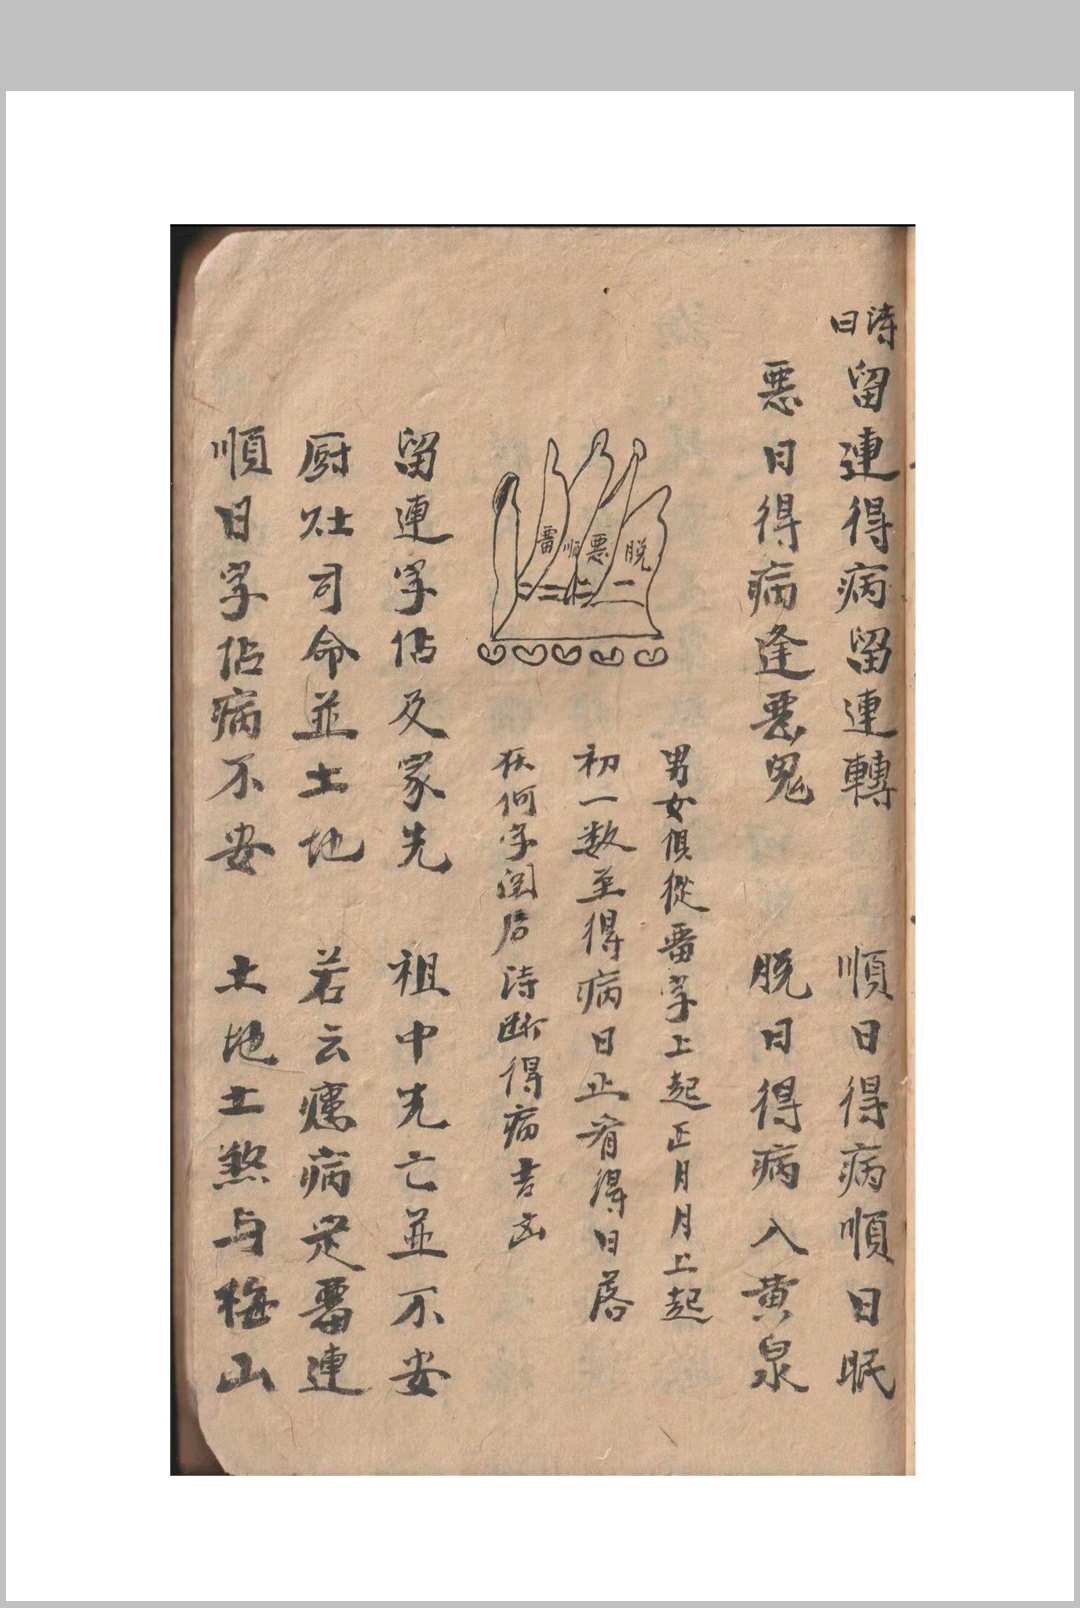 詩曰
留連得病留連轉 順日得病順日眠
惡日得病逢惡鬼 脱日得病入黄泉
畱 順 惡 脱
男女俱從畱字上起正月月上起
初一数至得病日止看得日落
在何字閲后诗断得病吉凶
留連字佔及家先 祖中先亡並不安
厨灶司命並土地 若云癘病定畱連
順日字佔病不安 土地土煞与梅山